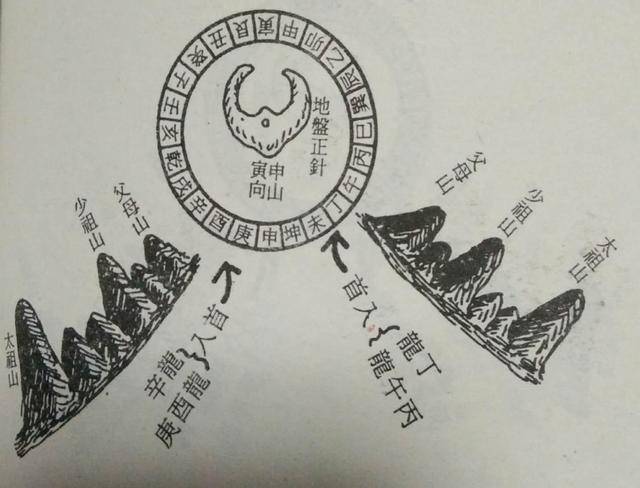 艮寅甲卯乙辰巽巳丙午丁未坤申庚酉辛戌乾亥壬子癸丑
地盤正針
申山
寅向
父母山
少祖山
太祖山
丁龍
丙午龍
入首
父母山
少祖山
太祖山
辛龍
庚酉龍
入首